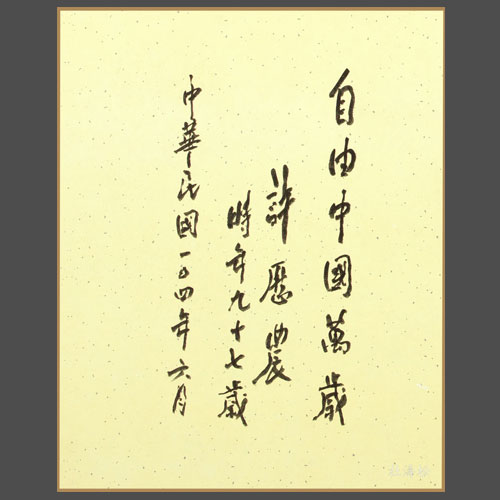 自由中國萬歲
許歷農
時年九十七歲
中華民國一〇四年六月